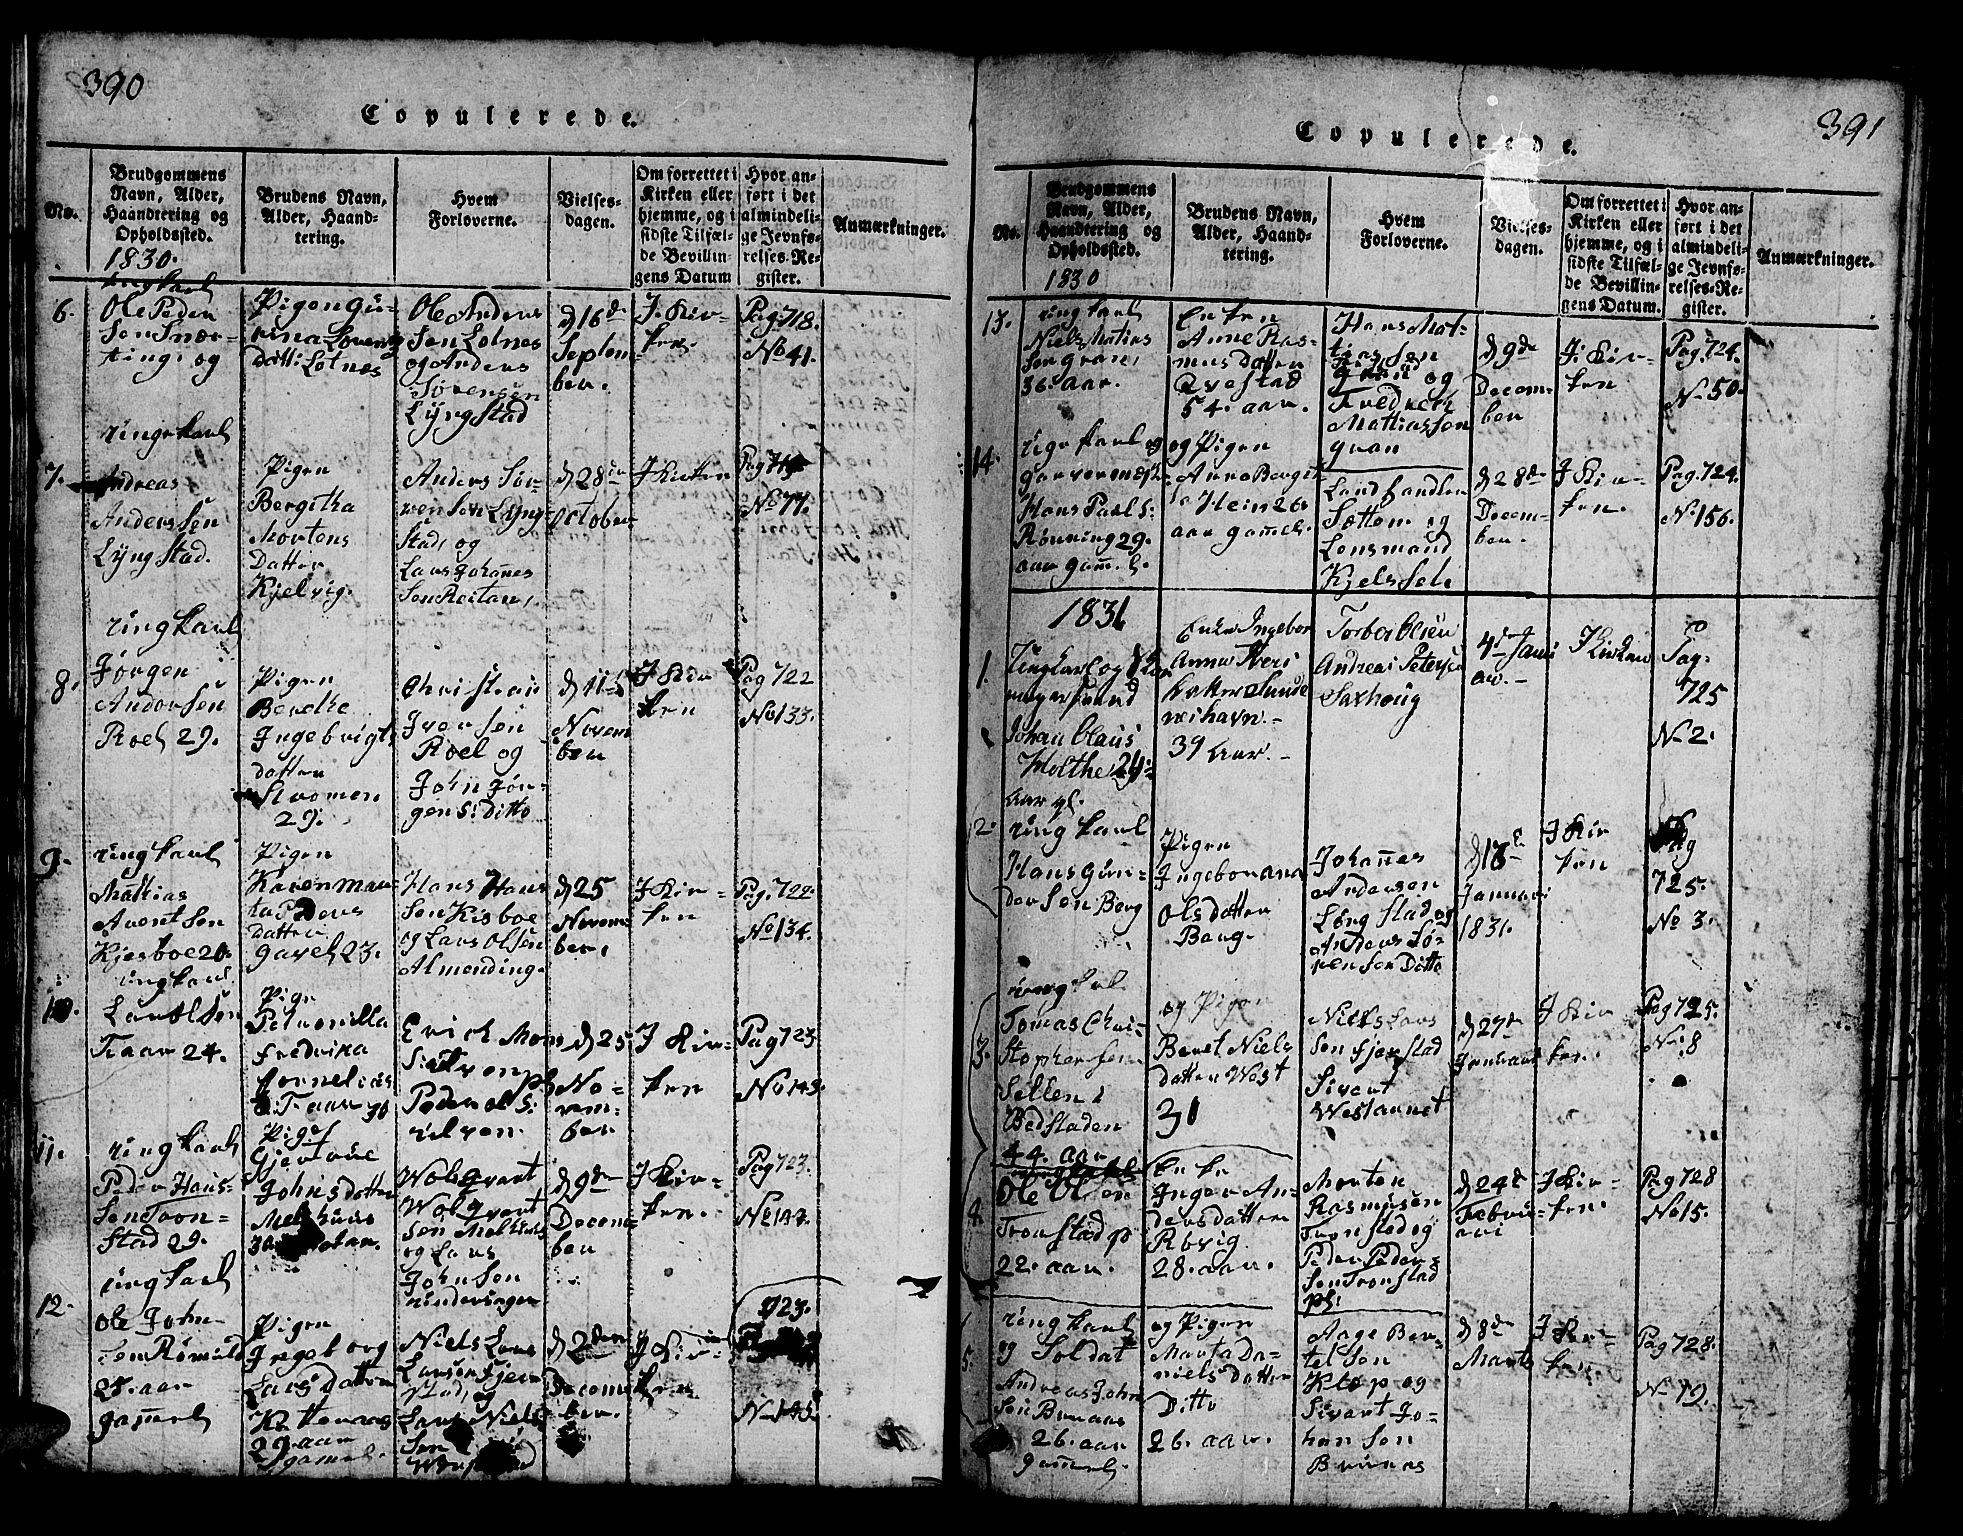 390
Copulerede.
No.
Brudgommens
Navn, Alder,
Haandtering og
Opholdssted.
1830.
Brudens Navn,
Alder, Haand-
tering.
Hvem
Forloverne.
Vielses-
dagen.
Om forrettet i
Kirken eller
hjemme, og i
sidste Tilfæl-
de Bevillin-
gens Datum
Hvor an-
ført i det
almindeli-
ge Jevnfø-
relses-Re-
gister.
Anmærkninger.
6.
Ole Peder
Sen Snær-
ting og
Pigen Gu-
rina Lorentz
Datt: Lotnes
Ole Anders
Sen Lotnes
og Anders
Sørensen
Lyngstad
d 16de
Septem
ber.
J. Kir-
ken.
Pag. 718.
No 41.
7.
ungekarl
Andreas
Anderssen
Lyngstad.
Pigen
Bergitha
Mortens
Datter
Kjelvig.
Anders Sør-
rensen Lyng-
stad, og
Lars Johanes
Sen Reitan,
d 28de
October
J Kirken
No 77.
8.
ungkarl
Jørgen
Andersen
Roel 29.
Pigen
Berethe
Ingebrigts
datter
Stromen
29.
Christian
Iversen
Roel og
John Jør-
gens: Ditto
d 11te
Novem
ber
J Kir
ken
Pag 722
No 133.
9.
ungkarl
Mathias
Arentsen
Kjesboe 20.
Pigen
Karen Mar-
ta Peders
datter
gavel 23.
Hans Hans
Sen Kisboe
og Lars Olsen
Almending.
d 25
Novem
ber.
J Kir-
ken
Pag. 722.
No 134.
10.
ungkarl
Lars Olsen
Traar 24.
Pige
Petronilla
Fredrika
Cornelias
Traar 30
Erich Mons
Peder Ols:
d 25
No-
vem-
ber
J Kir-
ken
Pag 723
No 143.
11.
ungkarl
Peder Hans-
Sen Tron-
stad 29.
Pige
Gjertrue
Johnsdatter
Melhuus
Wolqvart
Wolqvart
Sen Melhuus
og Lars
Johnsen
d 9de
Decem-
ber
J Kir-
ken.
Pag 723.
12.
ungkarl
Ole John-
Sen Römuld
25. aar
gammel
Pigen
Ingeborg
Larsdatter
29 aar
gamel.
Niels Lars
Larsen Fjer
stad, og
Lars Niels
Sen
d 2den
Decem
ber.
J Kir-
ken
723.
No 145.
391
Copulerede.
No.
Brudgommens
Navn, Alder,
Haandtering og
Opholdssted.
1830
Brudens Navn,
Alder, Haand-
tering.
Hvem
Forloverne.
Vielses-
dagen.
Om forrettet i
Kirken eller
hjemme, og i
sidste Tilfæl-
de Bevillin-
gens Datum.
Hvor an-
ført i det
almindeli-
ge Jevnfø-
relses-Re-
gister.
Anmærkninger.
13.
ungkarl
Niels Matias
Sen Gran,
36. aar.
Enken
Anne Ras-
musdatter
Qvestad
54. aar.
Hans Mat-
tiassen
og
Fredrich
Mathiassen
gran
d 9de
Decem-
ber
J. Kir-
ken
Pag. 724.
No 50.
14.
ungekarl og
Garvermest-
Hans Paul S:
Rønning 29.
aar gamel.
og Pigen
Anna Bergit-
ta Hein 26
aar gamel.
Landhandler
Sættem og
Lensmand
Kjelssele
d 28de
Decem-
ber.
J Kir-
ken.
Pag. 724.
No 156.
1831
1.
Ungkarl og
Johan Claus
Molthe 24
Aar gl.
Enke Ingebor
Anna
39 Aar.
Torber Olsen
Andreas Petersen
Saxhoug
4de Janu
ar.
J Kirken
Pag-
725
No 2.
2.
ungkarl
Hans Gun-
dersen Berg
Pigen
Ingeborana
Olsdatter
Berg.
Johannes
Andersen
Lyngstad og
Anders Sø-
rensen Ditto
Januari
1831.
J Kir
ken
Pag
725.
No 3.
3.
ungkarl
Tomas Chri-
stophersen
Sellen
Bedstaden
44. aar
og Pigen
Beret Niels
datter West
31
Niels Lars
Sen Fjerstad
Sivert
Westannet
d 27de
Januari
J Kir
ken.
Pag 725.
No 8
4.
Ole Olsen
Tronstad p
22. aar.
Enke
Inger An-
dersdatter
Rovig
28. aar.
Morten
Rasmussen
Tronstad og
Peder Peder-
Sen Tronstad
Pl:
d 24de
Februa-
ari
J Kir-
ken.
Pag 728
No 15.
5.
ungkarl
og Soldat
Andreas John
Sen Bruaas
26. aar
gammel
og Pigen
Marta Da-
nielsdatter
Ditto
26. aar.
Aage Ber-
telsen
Klop og
Sivert Jo-
hansen
Bruaas
d 8de
Marts
J Kir-
ken.
Pag 728.
No 19.